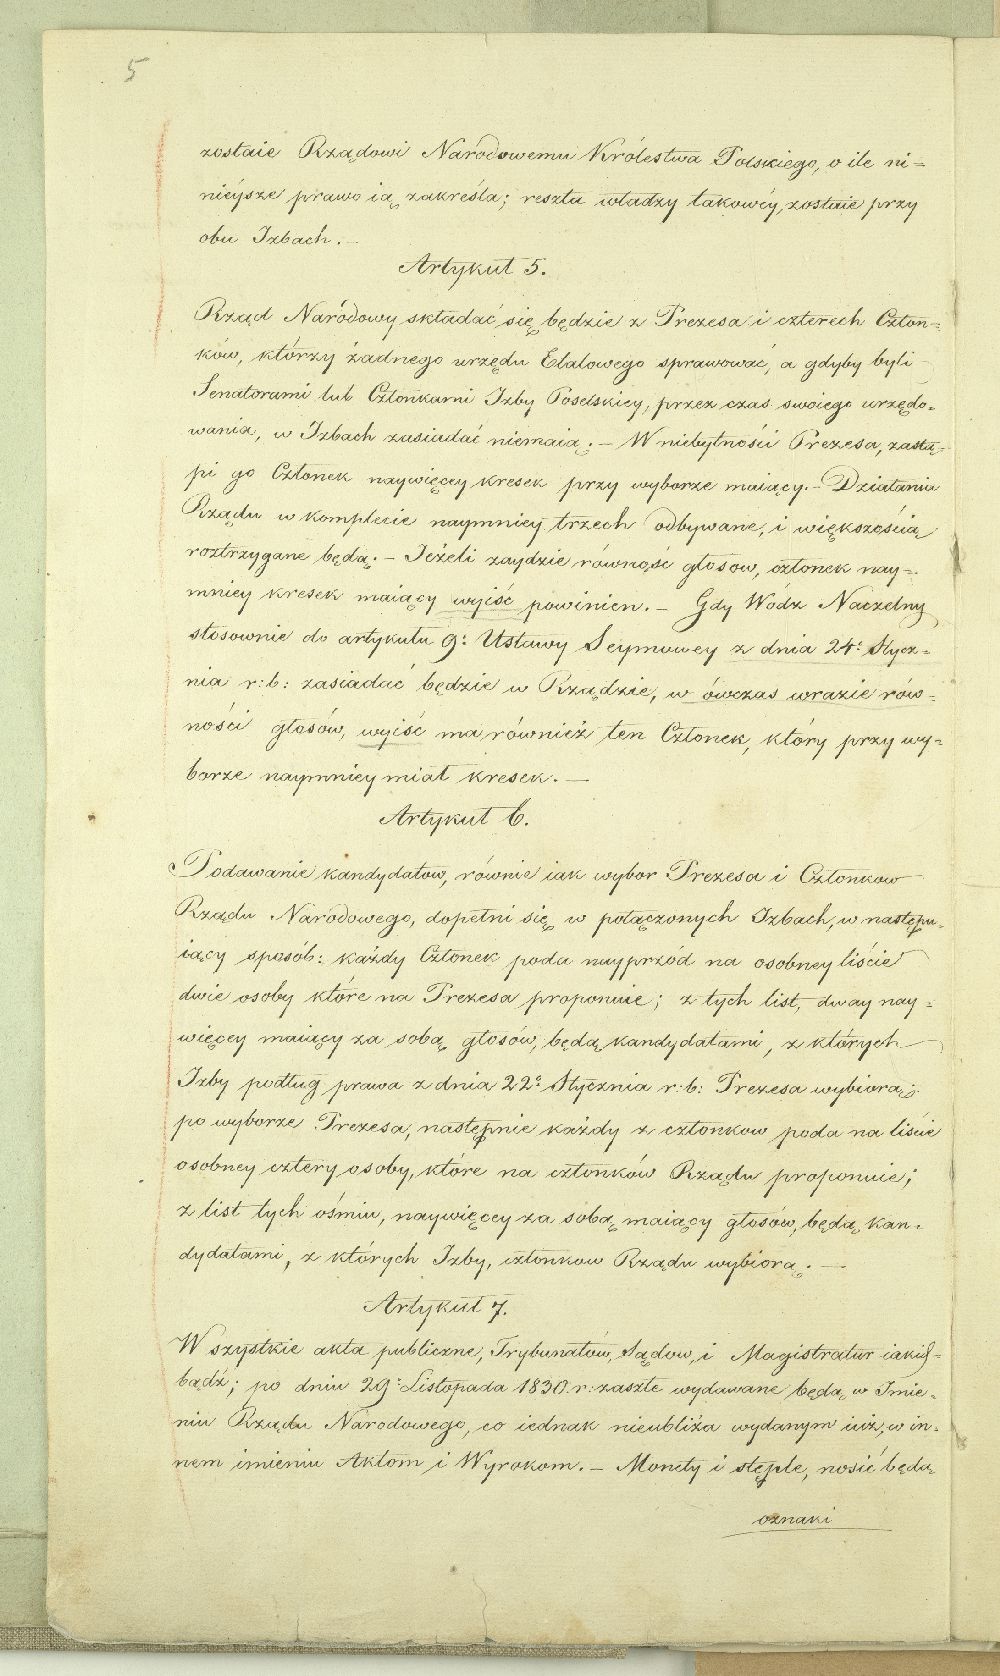 5
zostaie Rządowi Narodowemu Królestwa Polskiego, o ile ni=
nieysze prawo ią zakreśla; reszta władzy takowéy, zostaie przy
obu Izbach. —
Artykuł 5.
Rząd Narodowy składać się będzie z Prezesa i czterech Człon=
ków, którzy żadnego urzędu Etatowego sprawować, a gdyby byli
Senatorami lub Członkami Izby Poselskiey, przez czas swoiego urzędo=
wania, w Izbach zasiadać niemaią. — W niebytności Prezesa, zastą=
pi go Członek naywięcey kresek przy wyborze maiący. — Działania
Rządu w komplecie naymniey trzech odbywane, i większością
roztrzygane będą. — Jeżeli zaydzie równość głosow, członek nay=
mniey kresek maiący wyiść powinien. — Gdy Wódz Naczelny
stosownie do artykułu 9: Ustawy Seymowey z dnia 24: Stycz=
nia r: b: zasiadać będzie w Rządzie, w ówczas wrazie rów=
ności głosów, wyiść ma również ten Członek, który przy wy=
borze naymniey miał kresek. —
Artykuł 6.
Podawanie kandydatow, równie iak wybor Prezesa i Członkow
Rządu Narodowego, dopełni się w połączonych Izbach, w następu=
iący sposób: każdy Członek poda nayprzód na osobney liście
dwie osoby które na Prezesa proponuie; z tych list, dway nay=
więcey maiący za sobą głosów, będą kandydatami, z których
Izby podług prawa z dnia 22: Stycznia r: b: Prezesa wybiorą;
po wyborze Prezesa, następnie każdy z członkow poda na liście
osobney cztery osoby, które na członków Rządu proponuie;
z list tych ośmiu, naywięcey za sobą maiący głosów, będą kan=
dydatami, z których Izby, członkow Rządu wybiorą. —
Artykuł 7.
Wszystkie akta publiczne, Trybunałów, Sądow, i Magistratur iakich=
bądź; po dniu 29: Listopada 1830 r: zaszłe wydawane będą w Imie=
niu Rządu Narodowego, co iednak nieubliża wydanym iuż, w in=
nem imieniu Aktom i Wyrokom. — Monety i stęple, nosić będą
oznaki